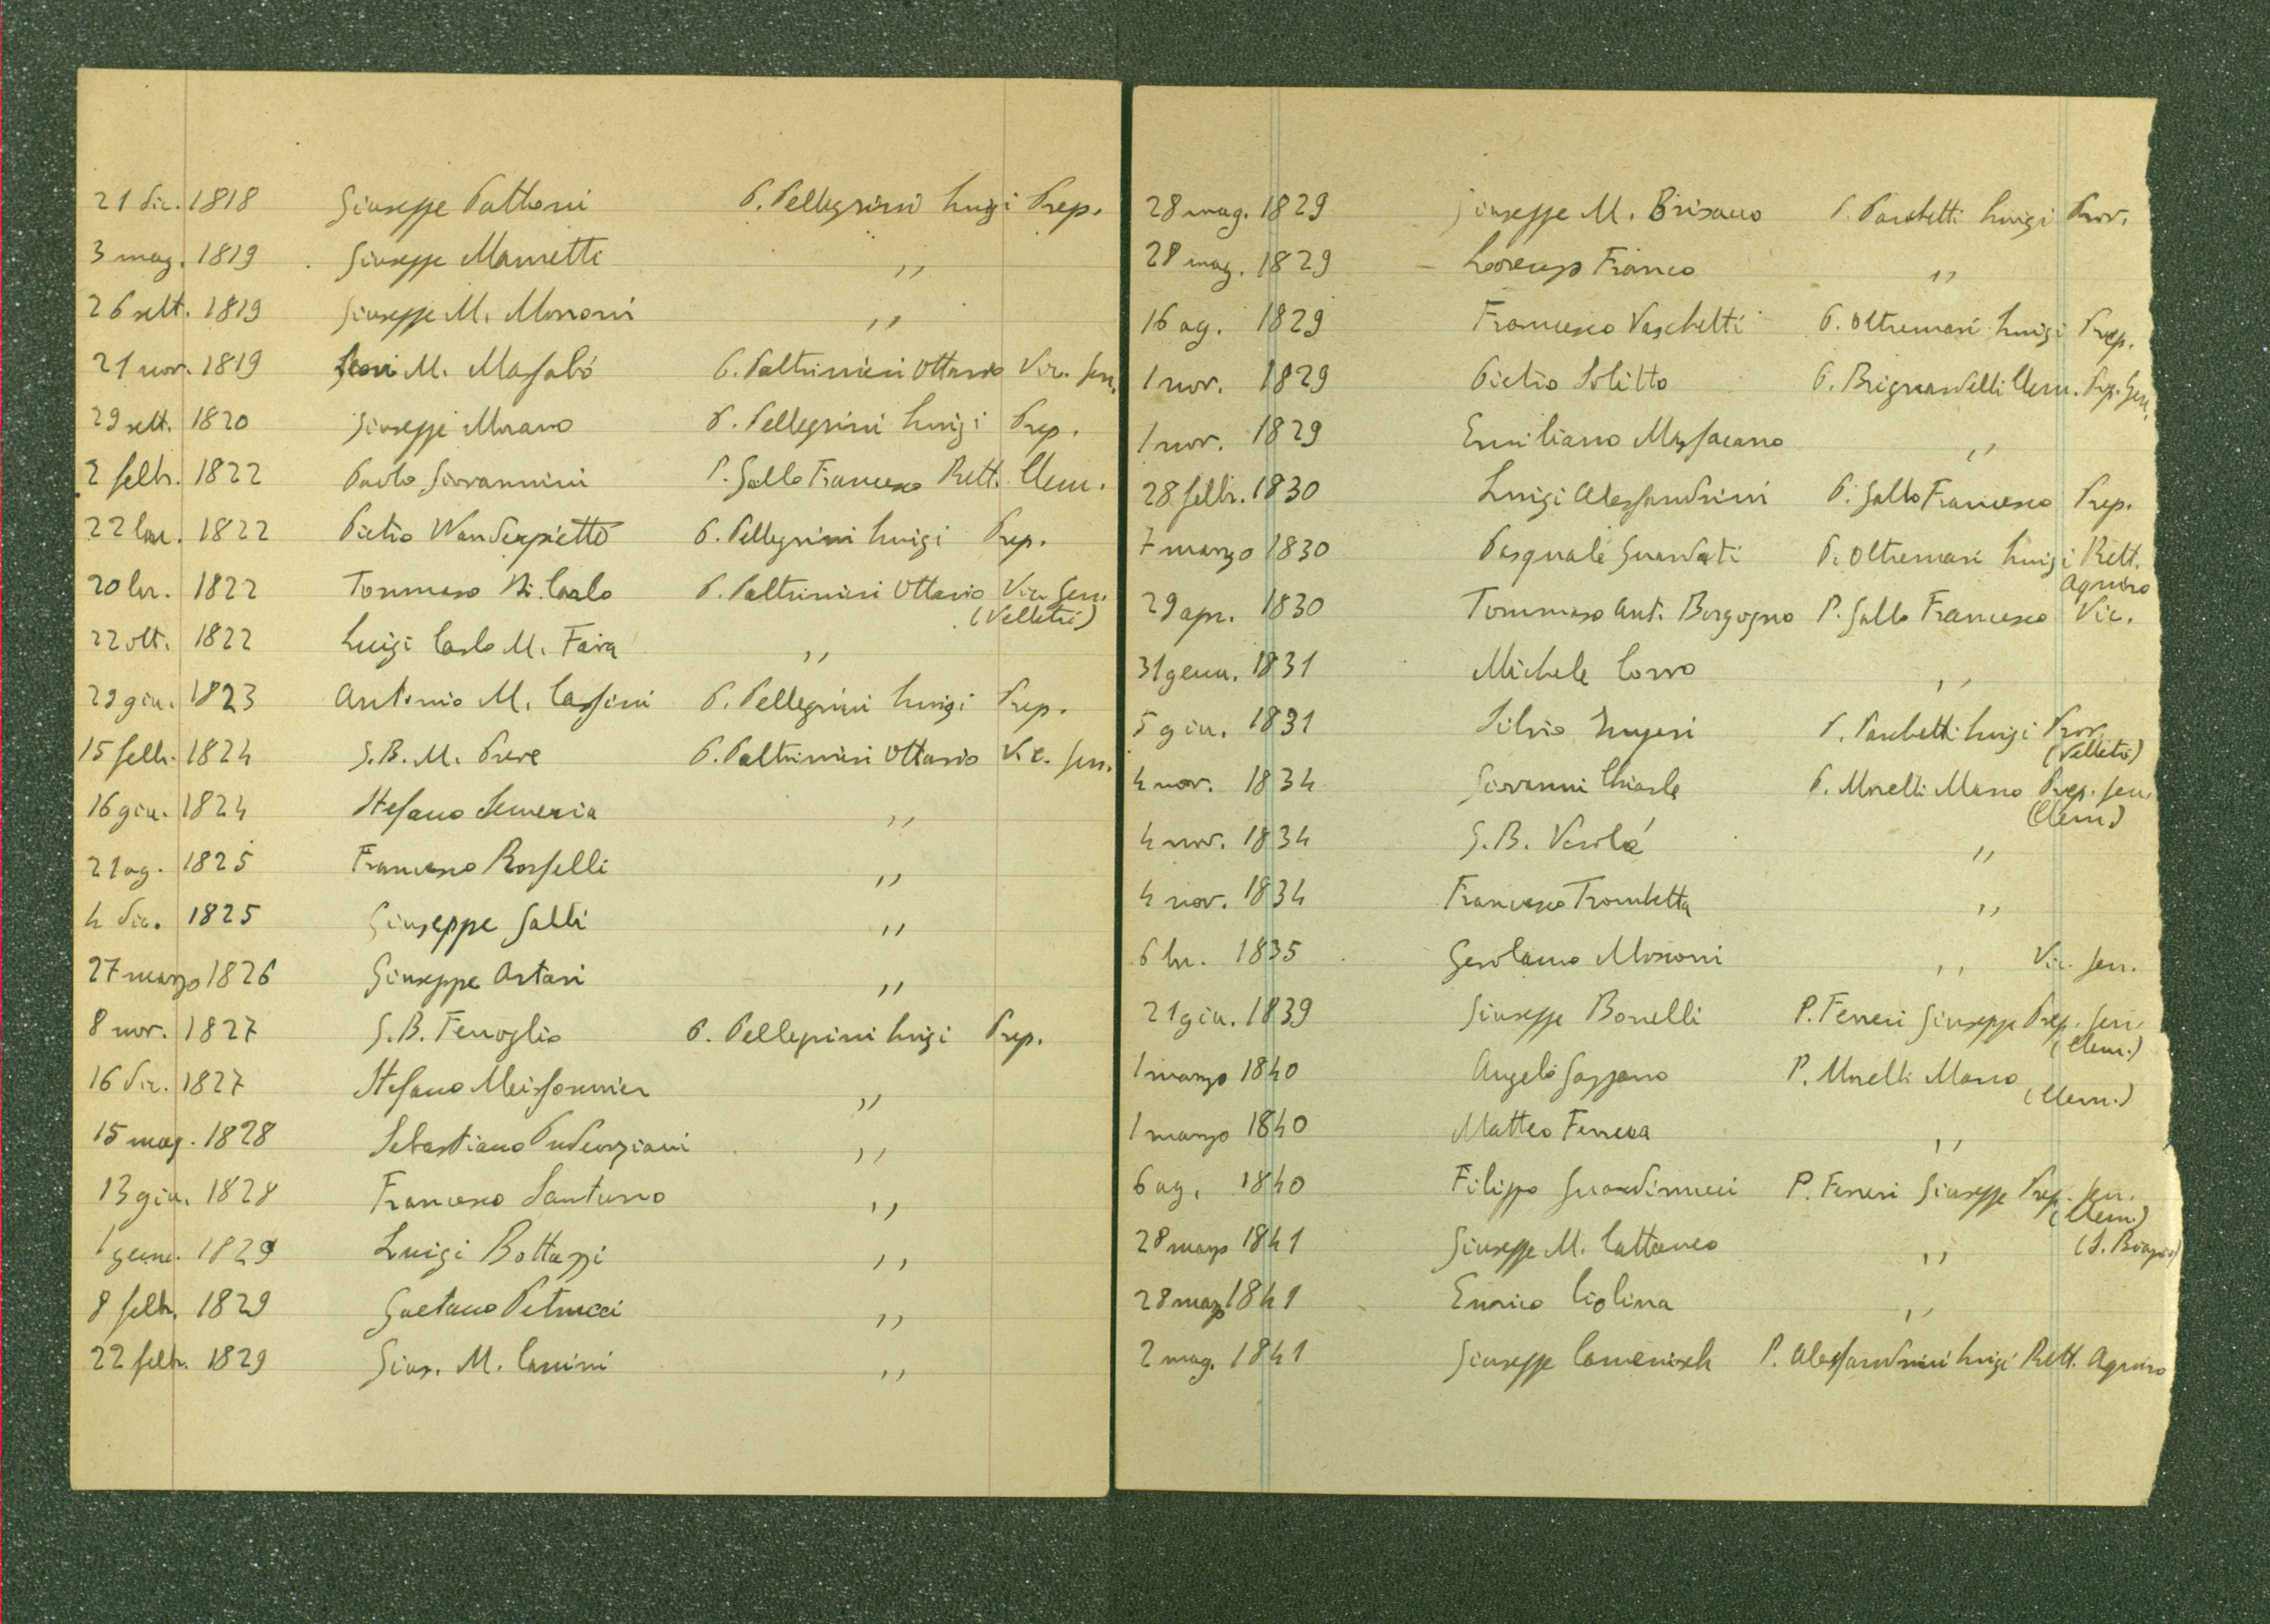 21 dic. 1818 Giuseppe Pattoni P. Pellegrini Luigi Prep.
3 mag. 1819 Giuseppe Mametti ,,
26 sett. 1819 Giuseppe M. Moroni ,,
21 nov. 1819 M. Massabó P. Paltrinieri Ottavio Vic. Gen.
29 sett. 1820 Giuseppe Morano P. Pellegrini Luigi Prep.
2 febb. 1822 Paolo Giovannini P. Gallo Francesco Rett. Clem.
22 1822 Pietro Wanderpietto P. Pellegrini Luigi Prep.
20 1822 Tommaso Di Carlo P. Paltrinieri Ottavio Vic. Gen.
(Velletri)
22 ott. 1822 Luigi Carlo M. Fava ,,
29 giu. 1823 Antonio M. Cassini P. Pellegrini Luigi Prep.
15 febb. 1824 G. B. M. Preve P. Paltrinieri Ottavio Vic. Gen.
16 giu. 1824 Stefano Semeria ,,
21 ag. 1825 Francesco Rosselli ,,
4 dic. 1825 Giuseppe Galli ,,
27 marzo 1826 Giuseppe Artari ,,
8 nov. 1827 G. B. Fenoglio P. Pellegrini Luigi Prep.
16 dic. 1827 Stefano Meissonnier ,,
15 mag. 1828 Sebastiano Pudenziani ,,
13 giu. 1828 Francesco Santurro ,,
1 genn. 1829 Luigi Bottazzi ,,
8 febb. 1829 Gaetano Petrucci ,,
22 febb. 1829 Gius. M. Canini ,,
28 mag. 1829 Giuseppe M. Brisano P. Parchetti Luigi Prov.
28 mag. 1829 Lorenzo Franco ,,
16 ag. 1829 Francesco Vaschetti P. Oltremari Luigi Prep.
1 nov. 1829 Pietro Solitto P. Brignardelli Clem. Prep. Gen.
1 nov. 1829 Emiliano Massacano ,,
28 febb. 1830 Luigi Alessandrini P. Gallo Francesco Prep.
7 marzo 1830 Pasquale Guardati P. Oltremari Luigi Rett.
Aquiro
29 apr. 1830 Tommaso Ant. Borgogno P. Gallo Francesco Vic.
31 genn. 1831 Michele Corvo ,,
5 giu. 1831 Silvio P. Parchetti Luigi Prov.
(Velletri)
4 nov. 1834 Giovanni Chiarle P. Morelli Marco Prep. Gen.
(Clem.)
4 nov. 1834 G. B. Verolá ,,
4 nov. 1834 Francesco Trombetta ,,
6 1835 Gerolamo Moroni ,, Vic. Gen.
21 giu. 1839 Giuseppe Borelli P. Ferreri Giuseppe Prep. Gen.
(Clem.)
1 marzo 1840 Angelo Gazzano P. Morelli Marco
(Clem.)
1 marzo 1840 Matteo Ferrera ,,
6 ag. 1840 Filippo Guardinucci P. Ferreri Giuseppe Prep. Gen.
(Clem.)
28 marzo 1841 Giuseppe M. Cattaneo ,, (S. Biagio)
28 marzo 1841 Enrico Ciolina ,,
2 mag. 1841 Giuseppe Camenisch P. Alessandrini Luigi Rett. Aquiro